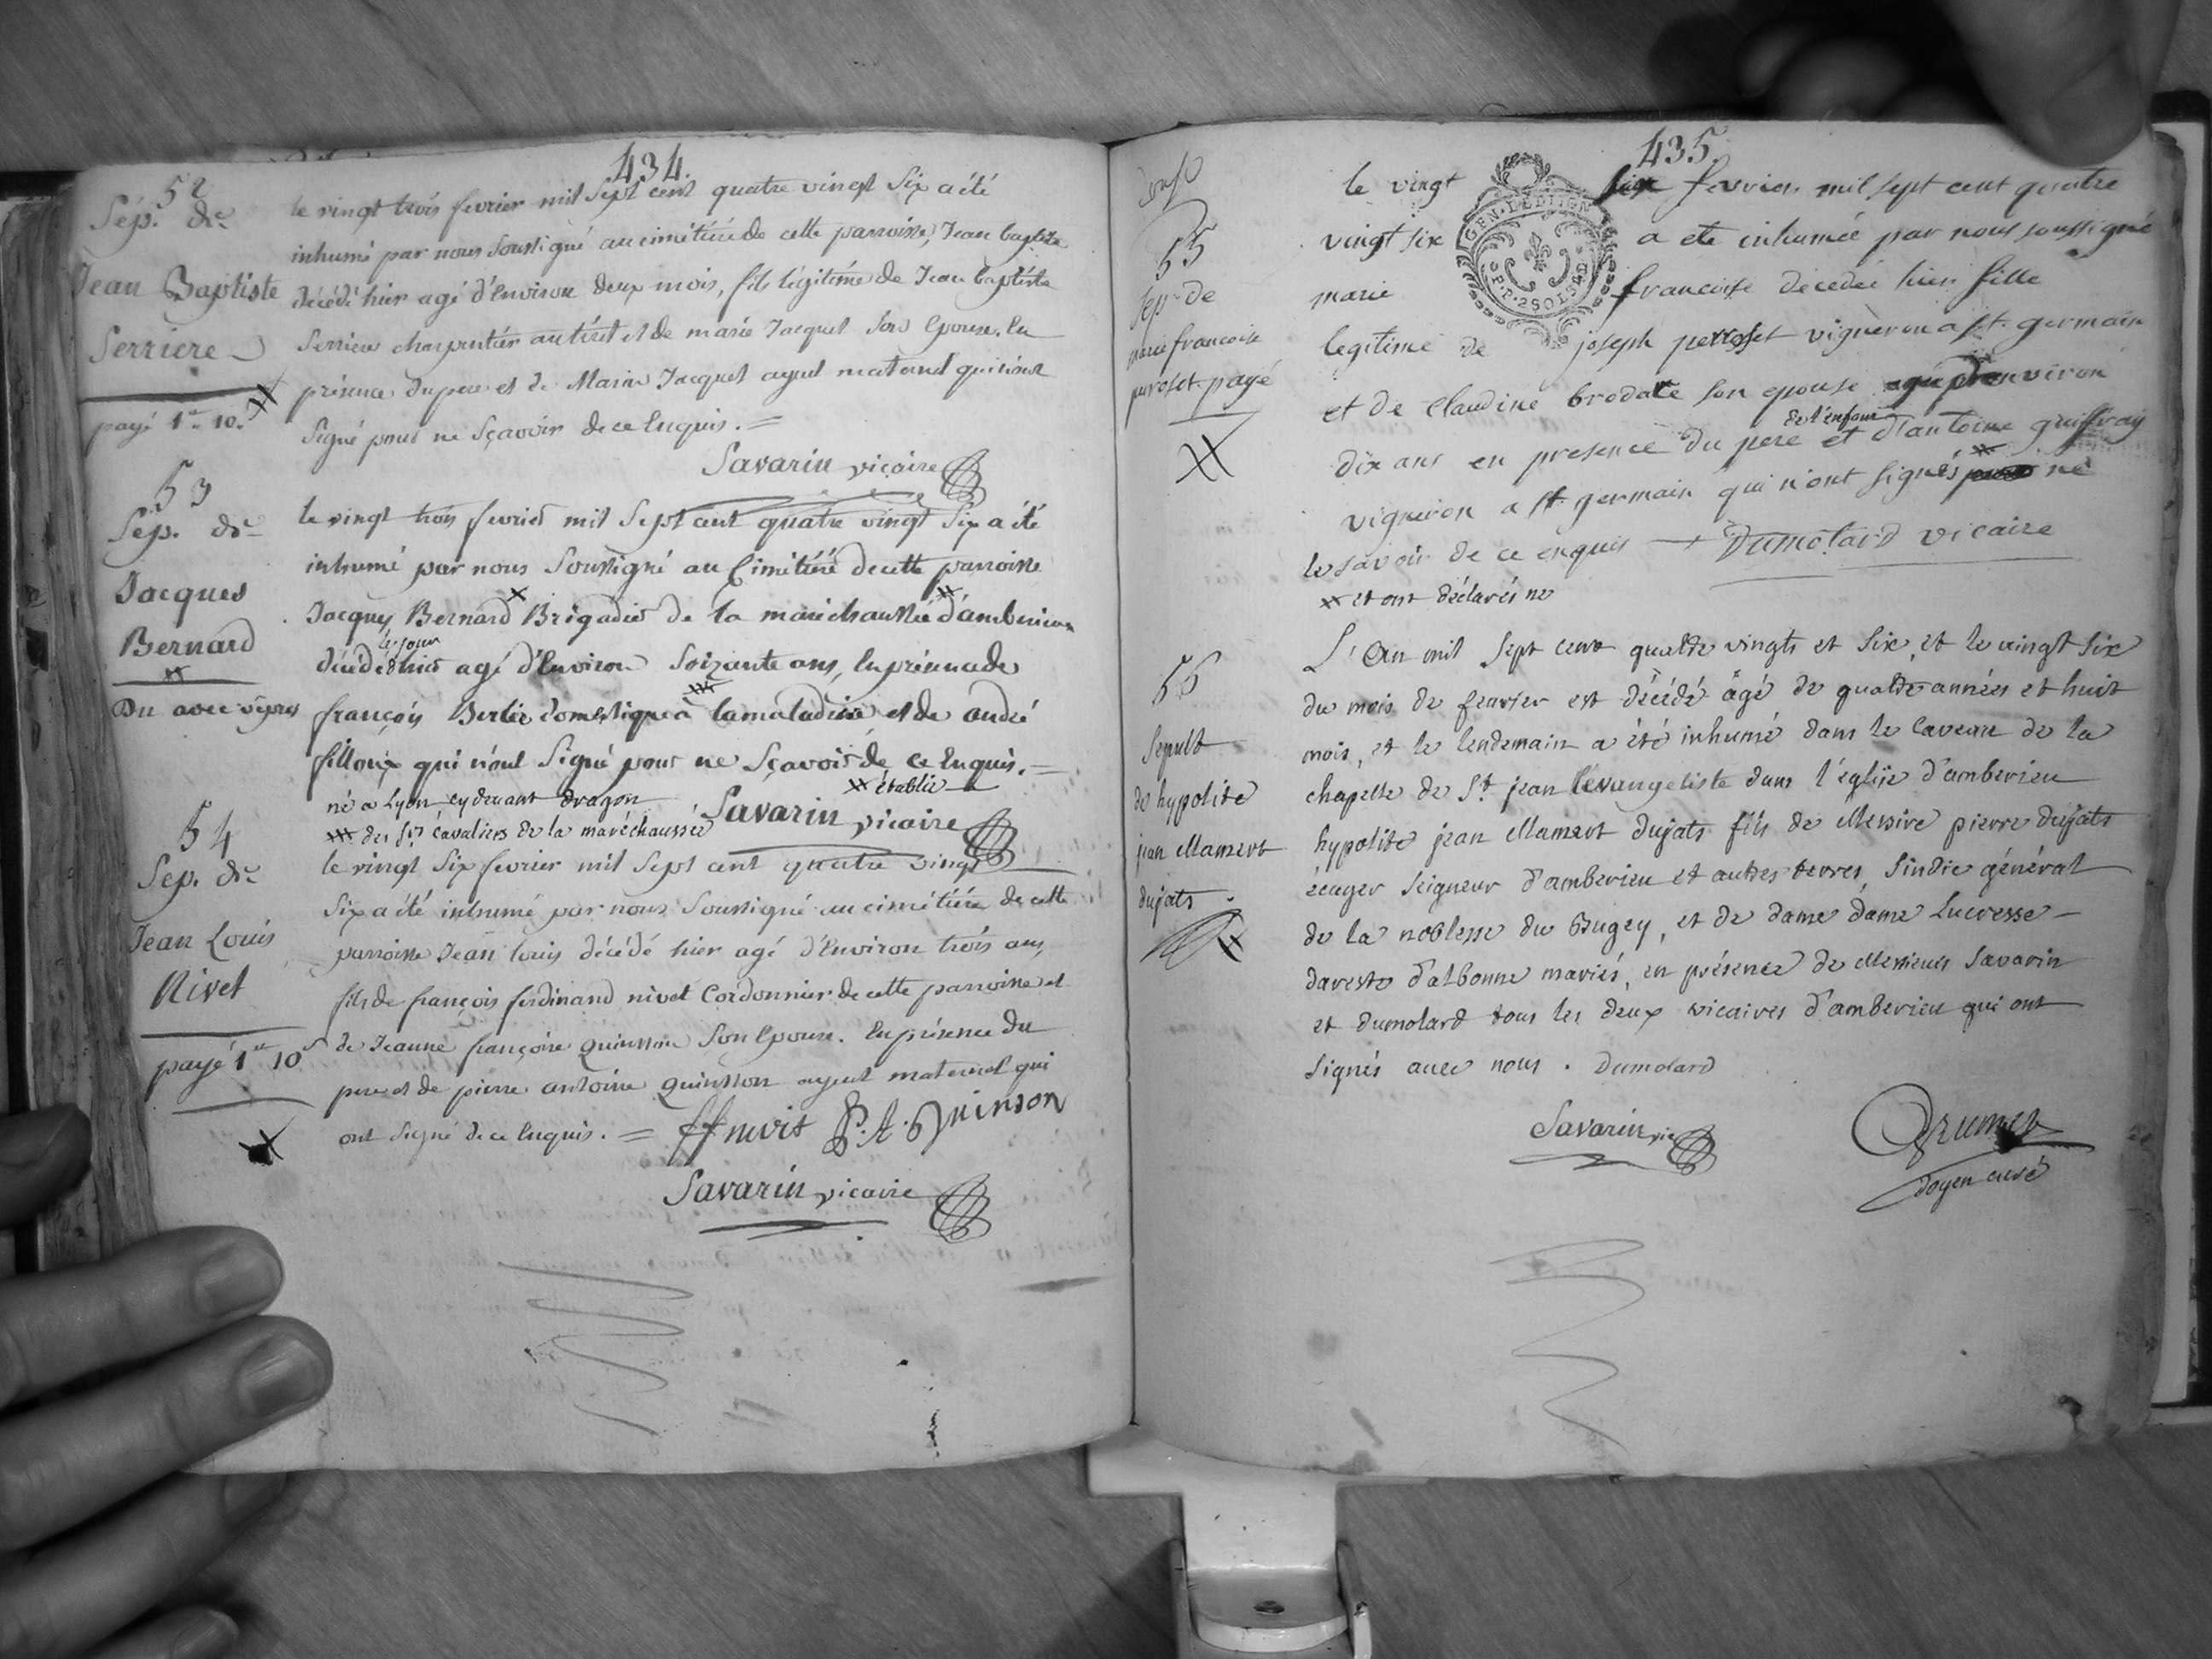 434.
52
Sép. de
Jean Baptiste
Serriere
payé 1ᵗᵗ 10ˢ
le vingt trois fevrier mil sept cent quatre vingt six a été
inhumé par nous soussigné au cimétiére de cette parroisse, Jean baptiste
décédé hier agé d'environ deux mois, fils légitime de Jean baptiste
Serriere charpentier au tiret et de marie Jacquet son épouse. En
présence du pere et de Marin Jacquet ayeul maternel qui n'ont
signé pour ne sçavoir de ce enquis. =
Savarin vicaire
53
Sep. de
Jacques
Bernard
Du avec vêpres
le vingt trois fevrier mil sept cent quatre vingt six a été
inhumé par nous soussigné au cimétiéré de cette parroisse
Jacques Bernard Brigadier de la maréchaussée d'amberieux
le jour
décédé d'hier agé d'environ soixante ans, en présence de
françois Berlie domestique à la maladiere et de andré
filloux qui n'ont signé pour ne sçavoir de ce enquis. =
né a Lyon cy devant dragon
xx établie
xxx des Srs cavaliers de la maréchaussée
Savarin vicaire
54
Sep. de
Jean Louis
Nivet
payé 1ᵗᵗ 10ˢ
le vingt six fevrier mil sept cent quatre vingt
six a été inhumé par nous soussigné au cimétiére de cette
parroisse Jean louis décédé hier agé d'environ trois ans,
fils de françois ferdinand nivet cordonnier de cette parroisse et
de Jeanne françoise quinsson son épouse. En présence du
pere et de pierre antoine quinsson ayeul maternel qui
ont signé de ce enquis. = ff nivet P. A. Quinson
Savarin vicaire
435.
55
Sep de
marie francoise
peroset payé
le vingt six fevrier mil sept cent quatre
vingt six a eté inhumée par nous soussigné
marie francoise decedée hier fille
legitime de joseph perroset vigneron a st. germain
et de claudine brodate son epouse agée d'environ
de l'enfant
dix ans en presence du pere et d'antoine guiffray
vigneron a st. germain qui n'ont signés ne
le savoir de ce enquis Dumolard vicaire
xx et ont déclarés ne
GEN. P.P. 2 SOLS
56
Sepult
de hypolite
jean Mamert
dujats.
L'an mil sept cent quatre vingts et six, et le vingt six
du mois de fevrier est décédé âgé de quatre années et huit
mois, et le lendemain a été inhumé dans le caveau de la
chapelle de St. jean l'évangeliste dans l'église d'amberieu
hypolite jean Mamert dujats fils de Messire pierre dujats
écuyer seigneur d'amberieu et autres terres, sindic général
de la noblesse du Bugey, et de dame dame Lucresse
dareste d'albonne mariés, en présence de Messieurs Savarin
et dumolard tous les deux vicaires d'amberieu qui ont
signés avec nous. Dumolard
Savarin vic
Grumet
doyen curé